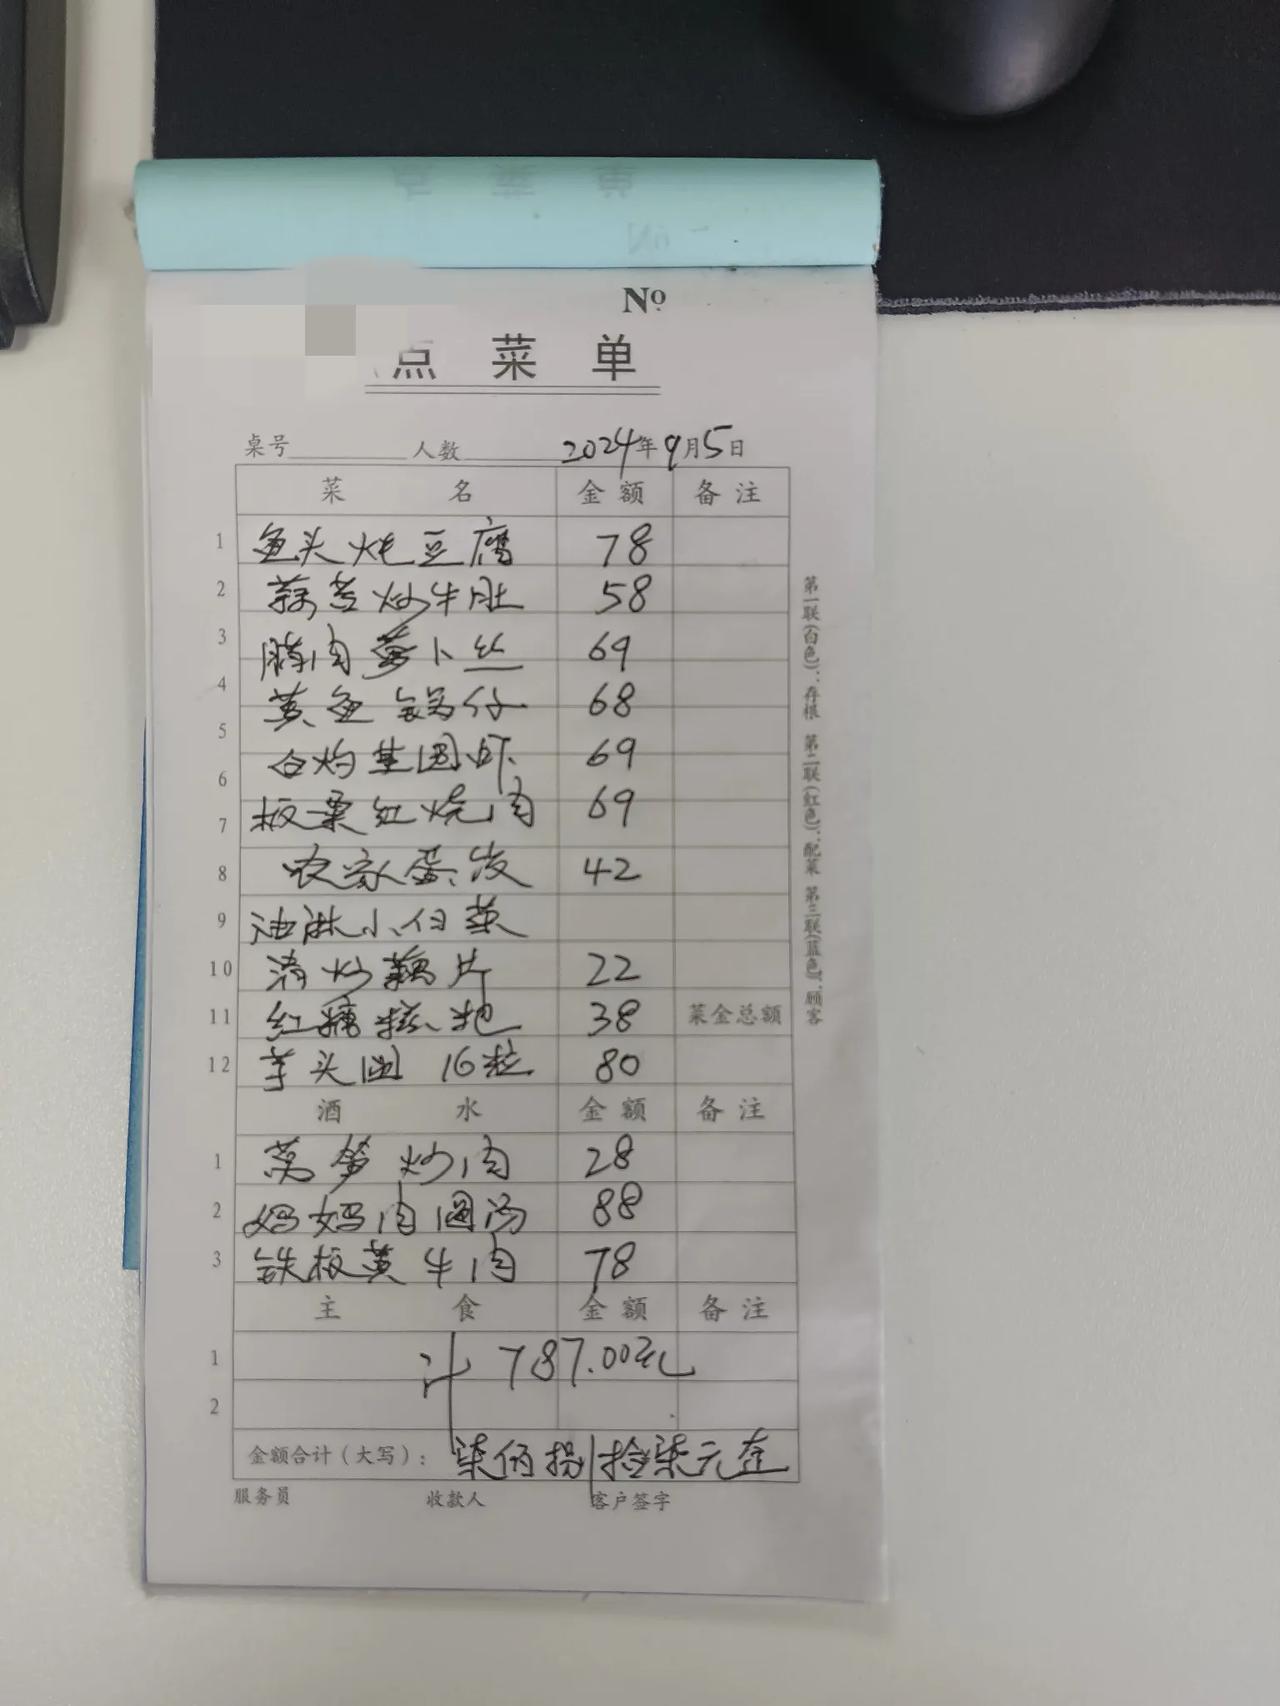 No
点 菜 单
桌号 人数 2024年9月5日
菜 名 金 额 备 注
1 鱼头炖豆腐 78
2 蒜苔炒牛肚 58
3 腊肉萝卜丝 69
4 黄鱼锅仔 68
5 白灼基围虾 69
6 板栗红烧肉 69
7
8 农家蛋饺 42
9 油淋小白菜
10 清炒藕片 22
11 红糖糍粑 38 菜金总额
12 芋头圆 16粒 80
酒 水 金 额 备 注
1 莴笋炒肉 28
2 妈妈肉圆汤 88
3 铁板黄牛肉 78
主 食 金 额 备 注
1 计 787.00元
2
金额合计（大写）： 柒佰捌拾柒元整
服务员 收款人 客户签字
第一联(白色)：存根 第二联(红色)：配菜 第三联(蓝色)：顾客